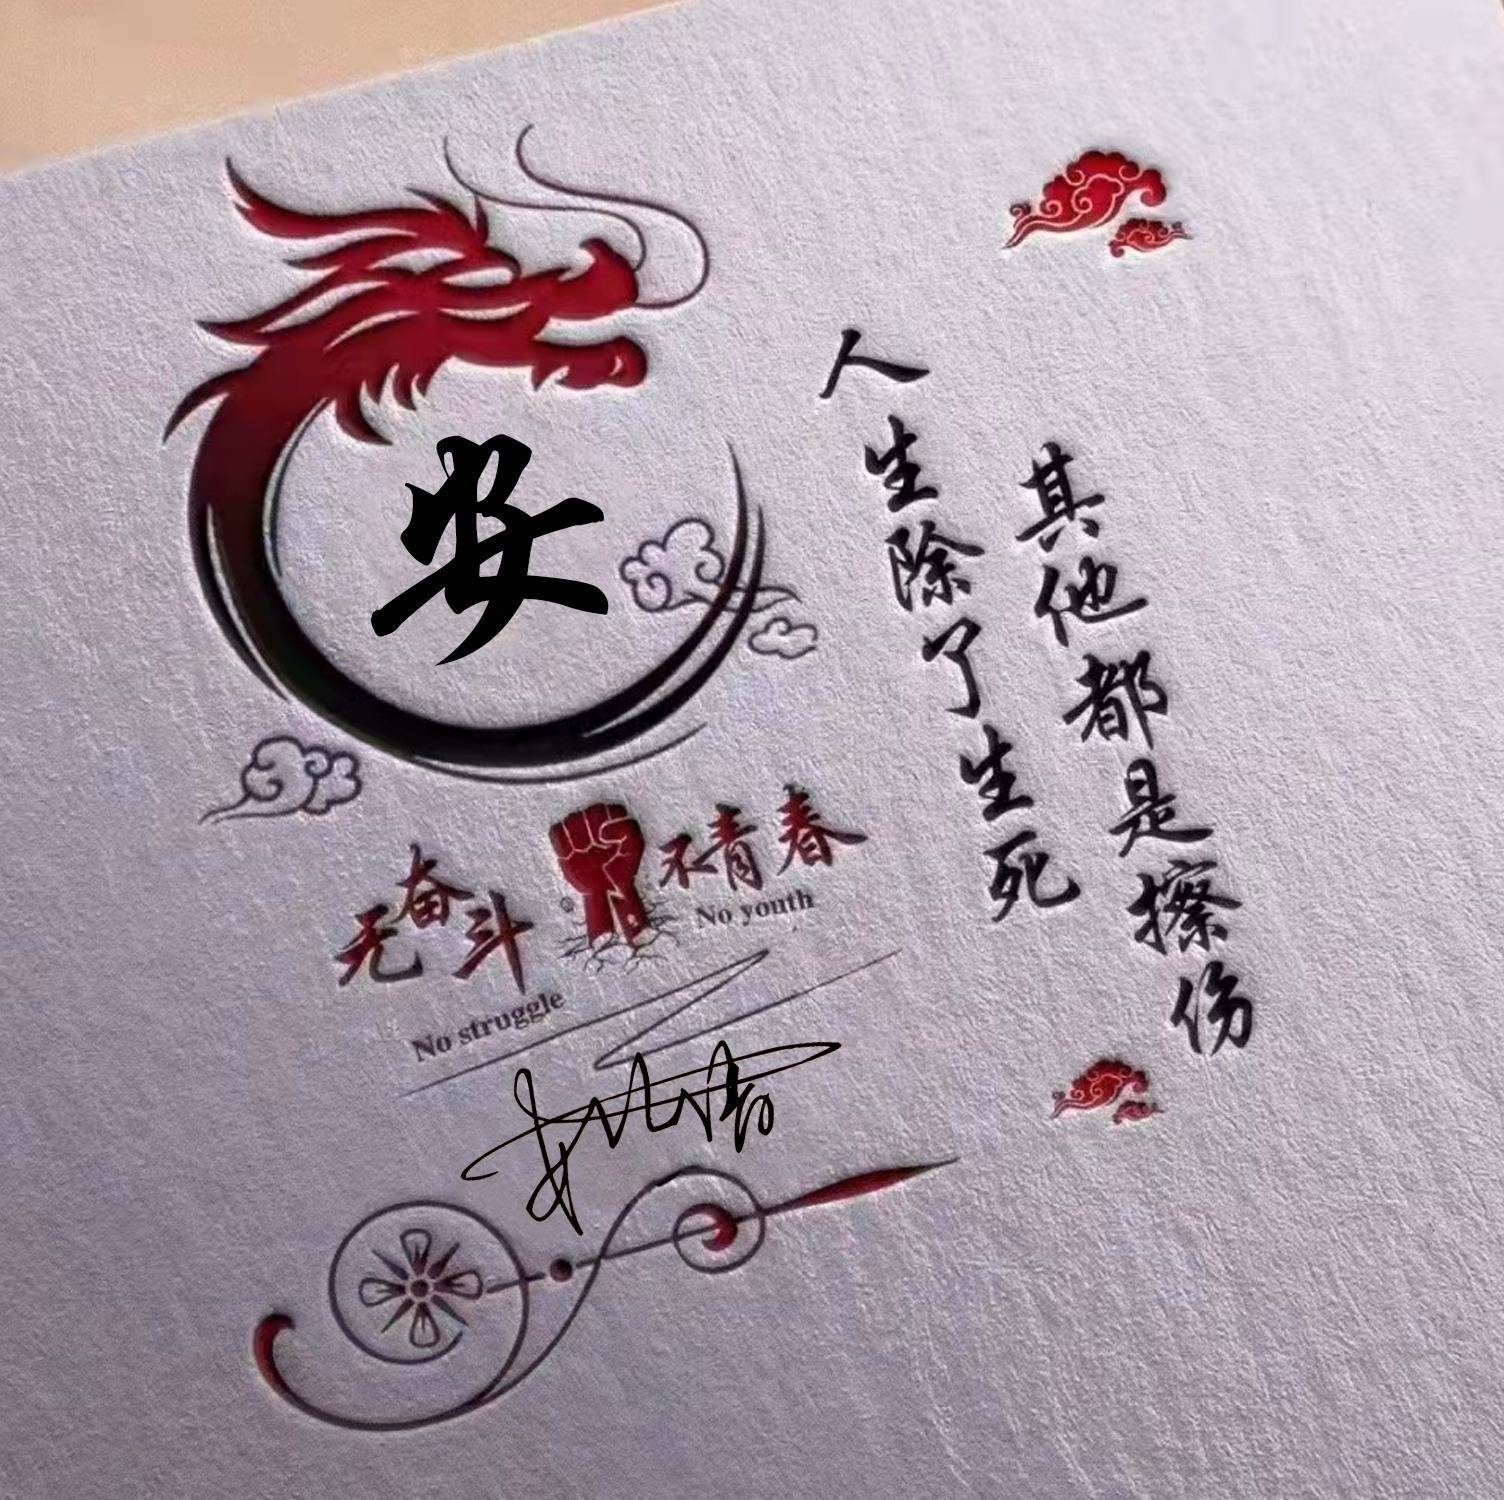 安
人生除了生死
其他都是擦伤
无奋斗
不青春
No struggle
No youth